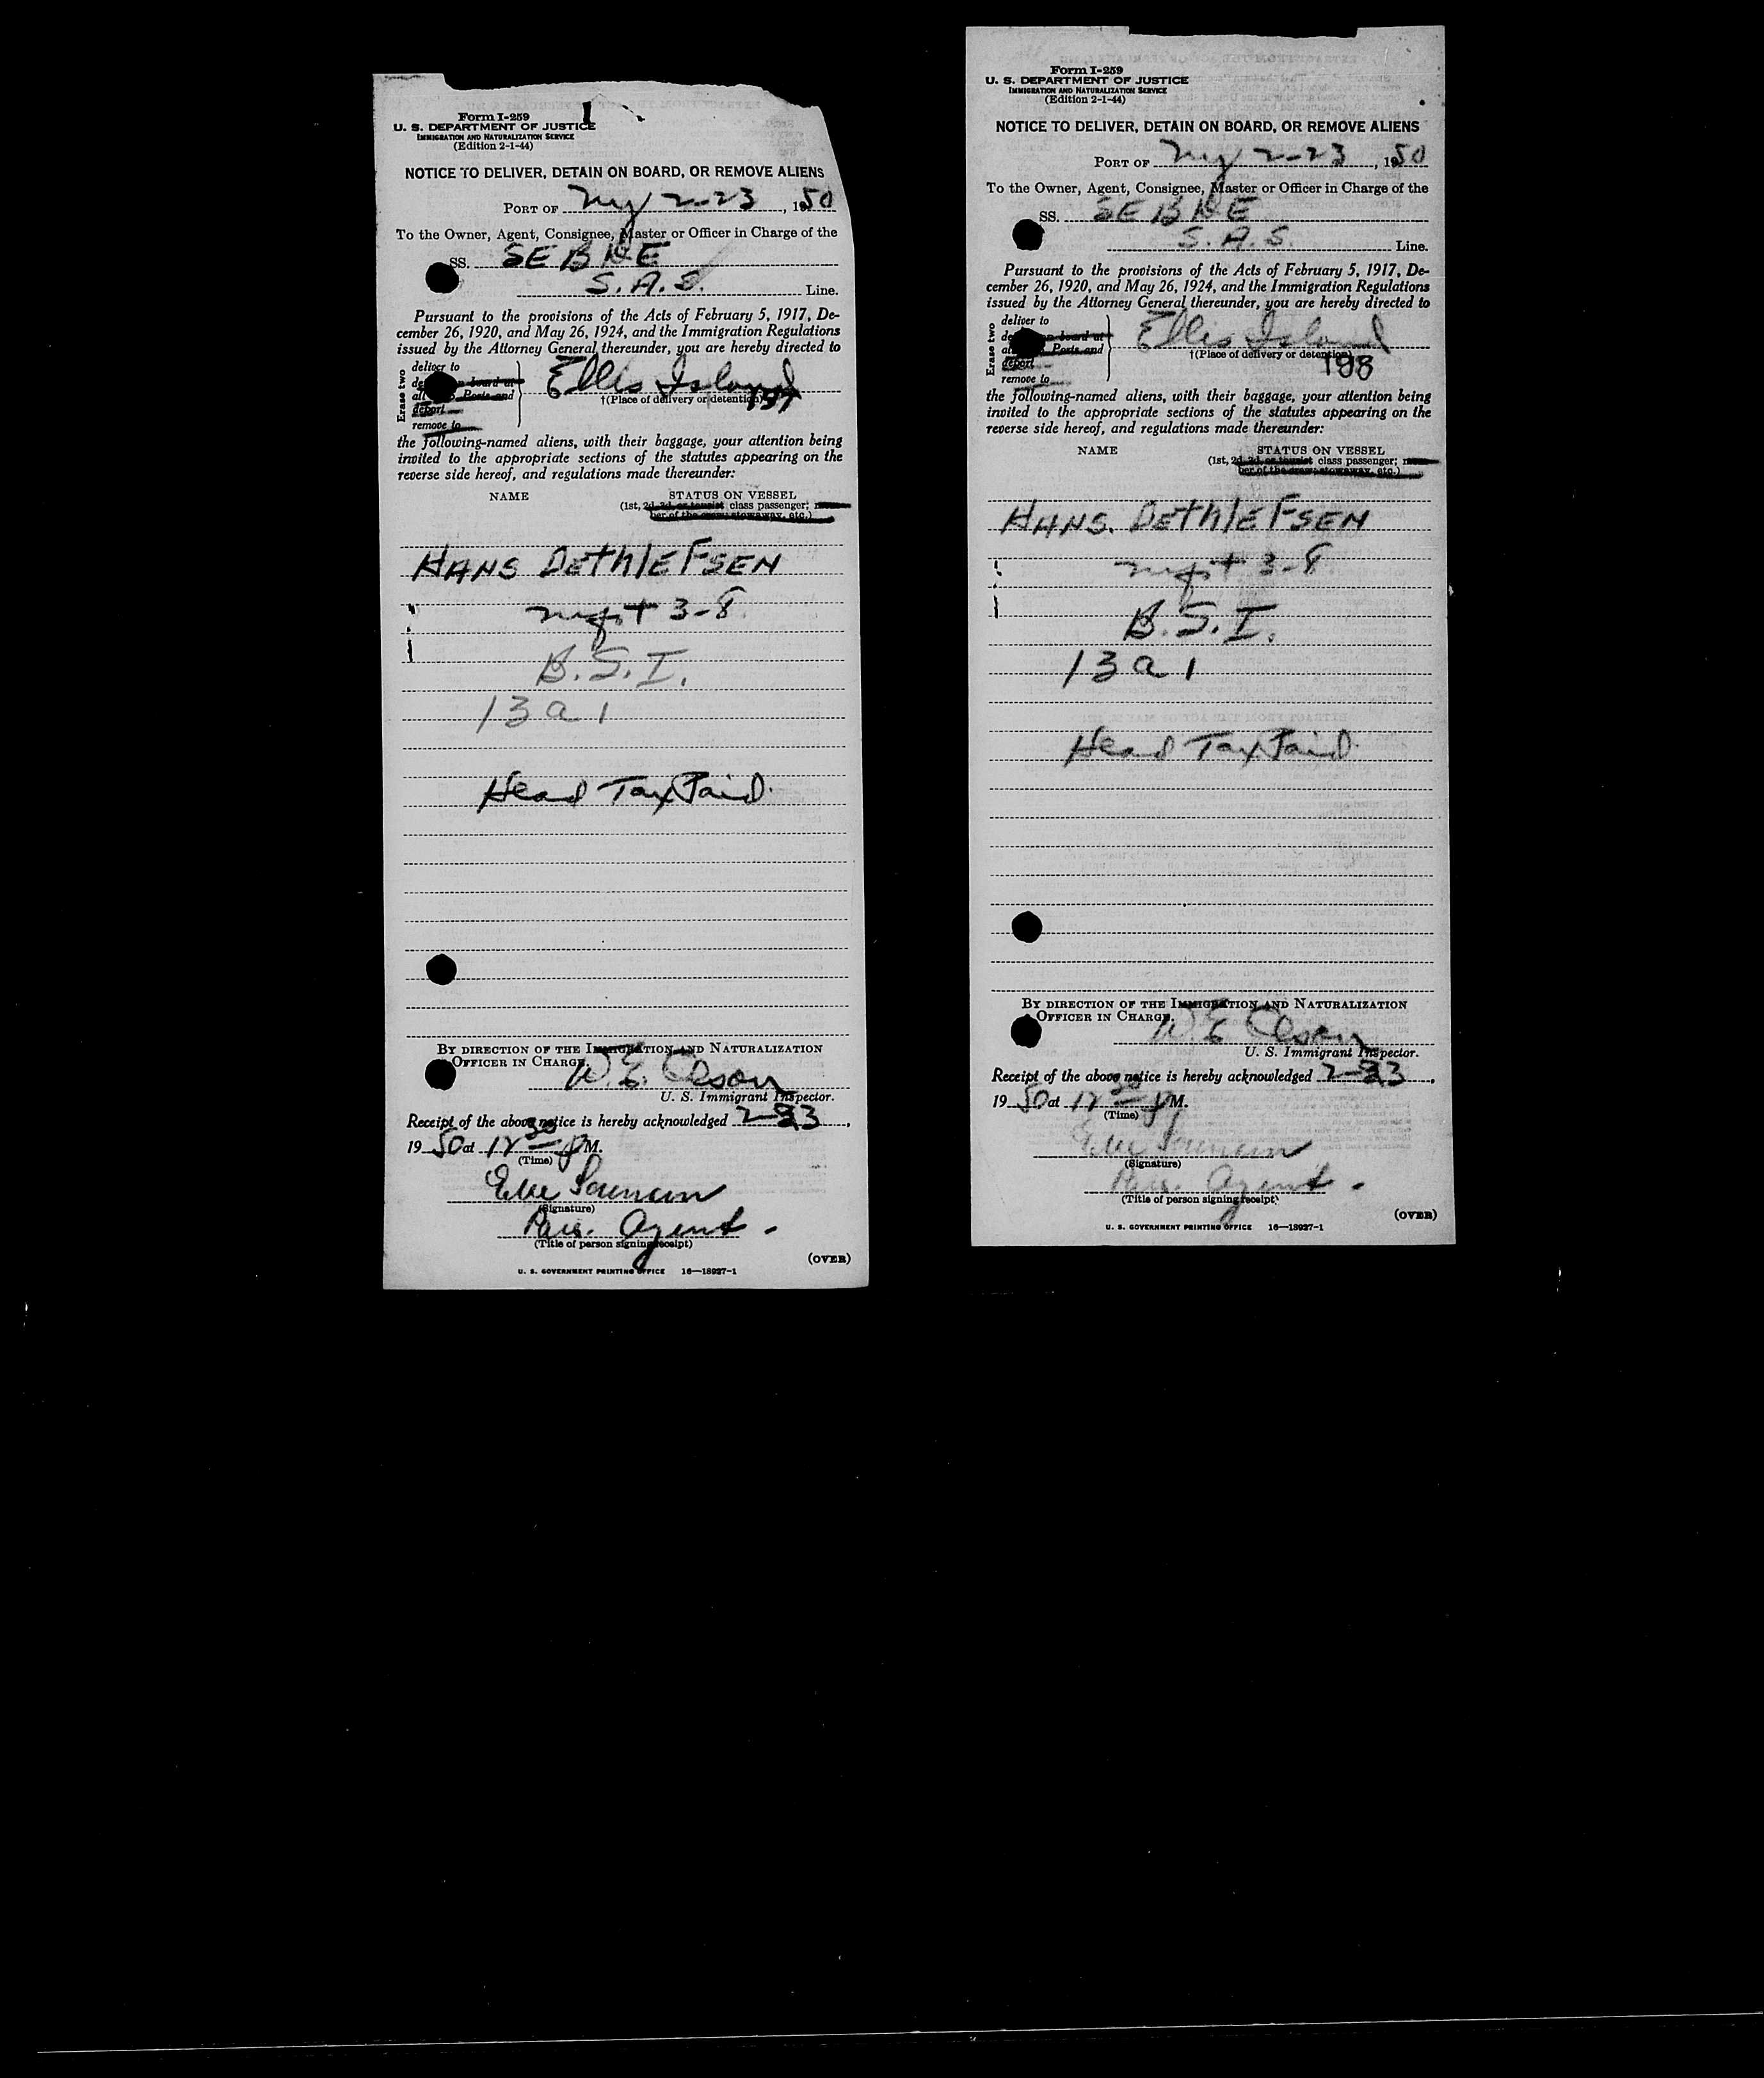 Form I-259
U. S. DEPARTMENT OF JUSTICE
IMMIGRATION AND NATURALIZATION SERVICE
(Edition 2-1-44)
NOTICE TO DELIVER, DETAIN ON BOARD, OR REMOVE ALIENS
PORT OF NY 2-23, 1950
To the Owner, Agent, Consignee, Master or Officer in Charge of the
SS. SEBNE
S.A.S. Line.
Pursuant to the provisions of the Acts of February 5, 1917, De-
cember 26, 1920, and May 26, 1924, and the Immigration Regulations
issued by the Attorney General thereunder, you are hereby directed to
Erase two
deliver to
on board at
Ports and
deport
remove to
Ellis Island
†(Place of delivery or detention) 197
the following-named aliens, with their baggage, your attention being
invited to the appropriate sections of the statutes appearing on the
reverse side hereof, and regulations made thereunder:
NAME STATUS ON VESSEL
(1st, 2d, 3d, or tourist class passenger;
ber of the crew, stowaway, etc.)
HANS DETHLEFSEN
mfst 3-8
B.S.I.
13 a 1
Head Tax Paid.
BY DIRECTION OF THE IMMIGRATION AND NATURALIZATION
OFFICER IN CHARGE.
W. E. Olson
U. S. Immigrant Inspector.
Receipt of the above notice is hereby acknowledged 2-23,
1950 at 12 30 PM.
(Time)
(Signature)
Pass. Agent.
(Title of person signing receipt)
(OVER)
U. S. GOVERNMENT PRINTING OFFICE 16—18937-1
Form I-259
U. S. DEPARTMENT OF JUSTICE
IMMIGRATION AND NATURALIZATION SERVICE
(Edition 2-1-44)
NOTICE TO DELIVER, DETAIN ON BOARD, OR REMOVE ALIENS
PORT OF NY 2-23, 1950
To the Owner, Agent, Consignee, Master or Officer in Charge of the
SS. SEBNE
S.A.S. Line.
Pursuant to the provisions of the Acts of February 5, 1917, De-
cember 26, 1920, and May 26, 1924, and the Immigration Regulations
issued by the Attorney General thereunder, you are hereby directed to
Erase two
deliver to
on board at
Ports and
deport
remove to
Ellis Island
†(Place of delivery or detention)
198
the following-named aliens, with their baggage, your attention being
invited to the appropriate sections of the statutes appearing on the
reverse side hereof, and regulations made thereunder:
NAME STATUS ON VESSEL
(1st, 2d, 3d, or tourist class passenger;
ber of the crew, stowaway, etc.)
HANS. DETHLEFSEN
mfst 3-8
B.S.I.
13 a 1
Head Tax Paid.
BY DIRECTION OF THE IMMIGRATION AND NATURALIZATION
OFFICER IN CHARGE.
W. E. Olson
U. S. Immigrant Inspector.
Receipt of the above notice is hereby acknowledged 2-23,
1950 at 12 30 PM.
(Time)
(Signature)
Pass. Agent.
(Title of person signing receipt)
(OVER)
U. S. GOVERNMENT PRINTING OFFICE 16—18937-1